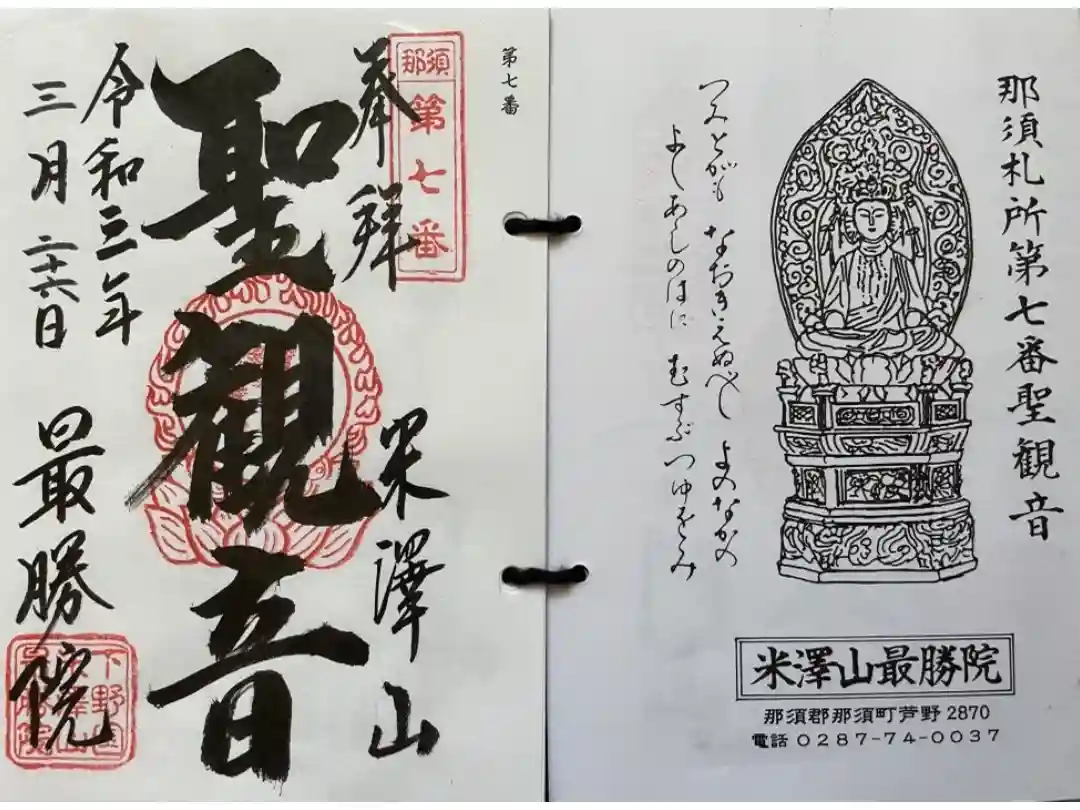 那須札所第七番聖観音
つみとがも なおきえぬべし よのなかの
よしあしのはに むすぶつゆをみ
米澤山最勝院
那須郡那須町芦野2870
電話 0287-74-0037
第七番
那須
第七番
奉拝
米澤山
聖観音
令和三年
三月二十六日
最勝院
下野国